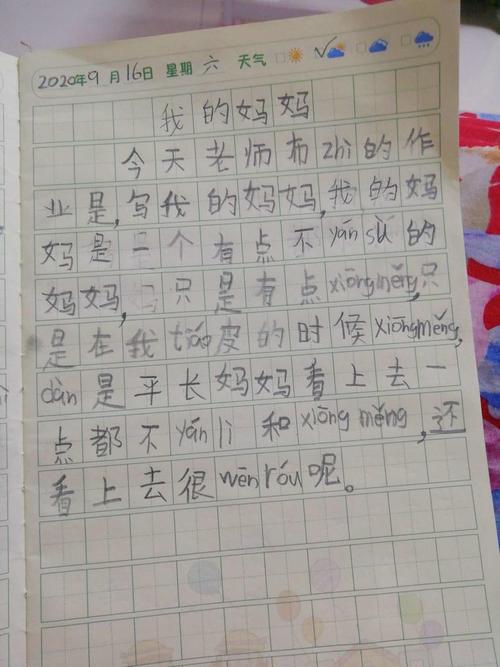 2020年9月16日 星期 六 天气
我的妈妈
今天老师布zhì的作
业是,写我的妈妈,我的妈
妈是一个有点不yánsù的
妈妈,只是有点xiōngměng,只
是在我tiáo皮的时候xiōngměng,
dàn是平长妈妈看上去一
点都不yánlì和xiōngměng,还
看上去很wēnróu呢。